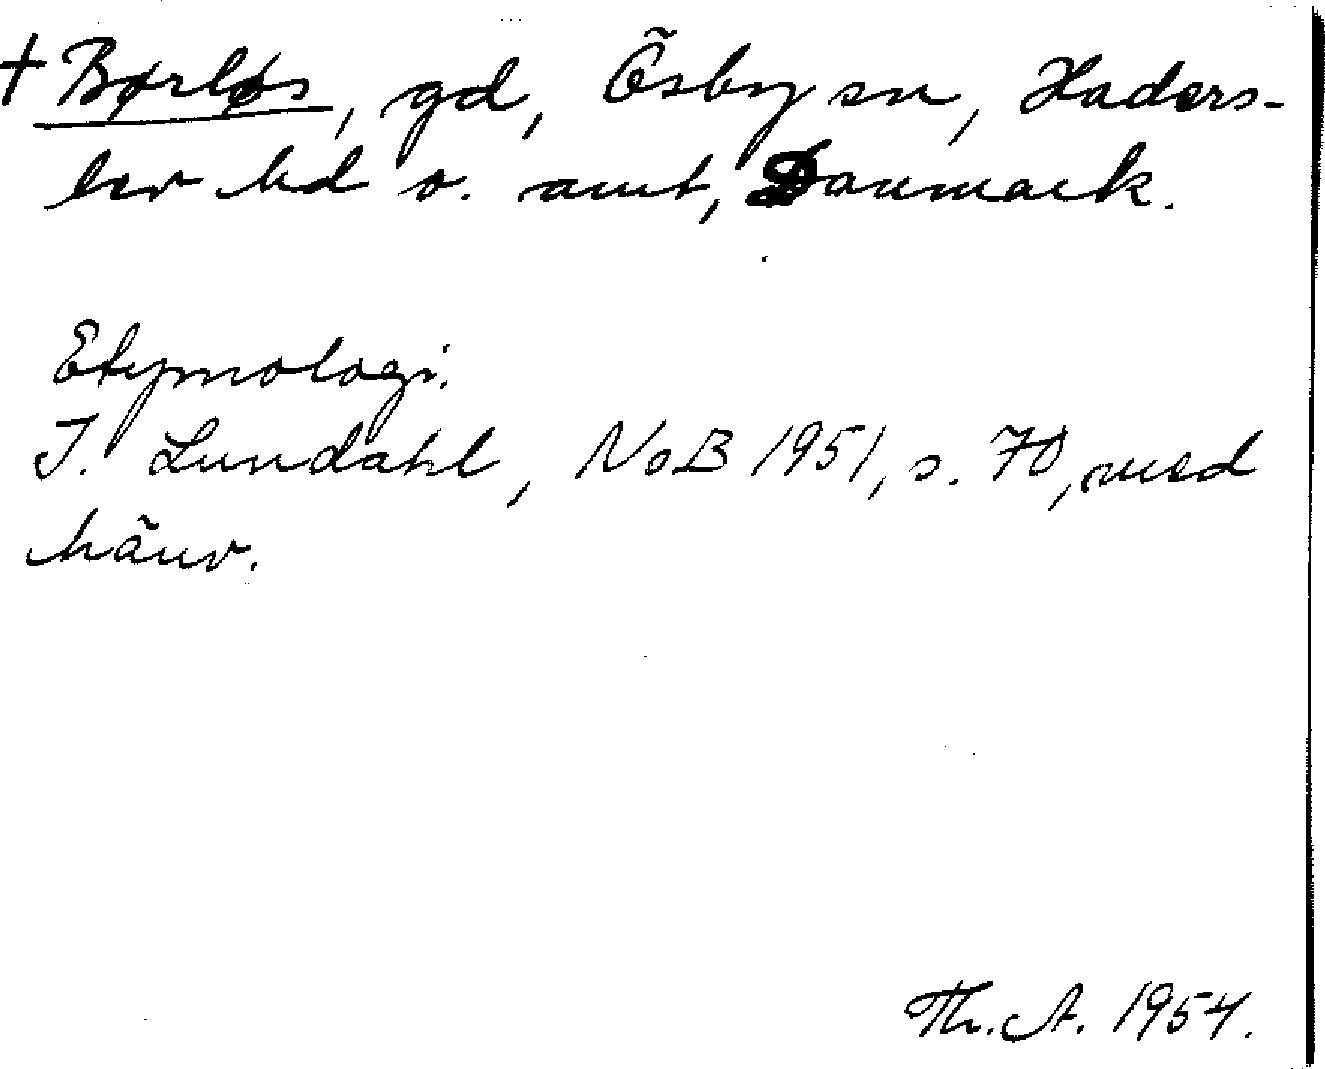 † Børløs, gd, Ösby sn, Haders-
lev hd o. amt, Danmark.
Etymologi.
I. Lundahl, NoB 1951, s. 70, med
hänv.
Th. A. 1954.